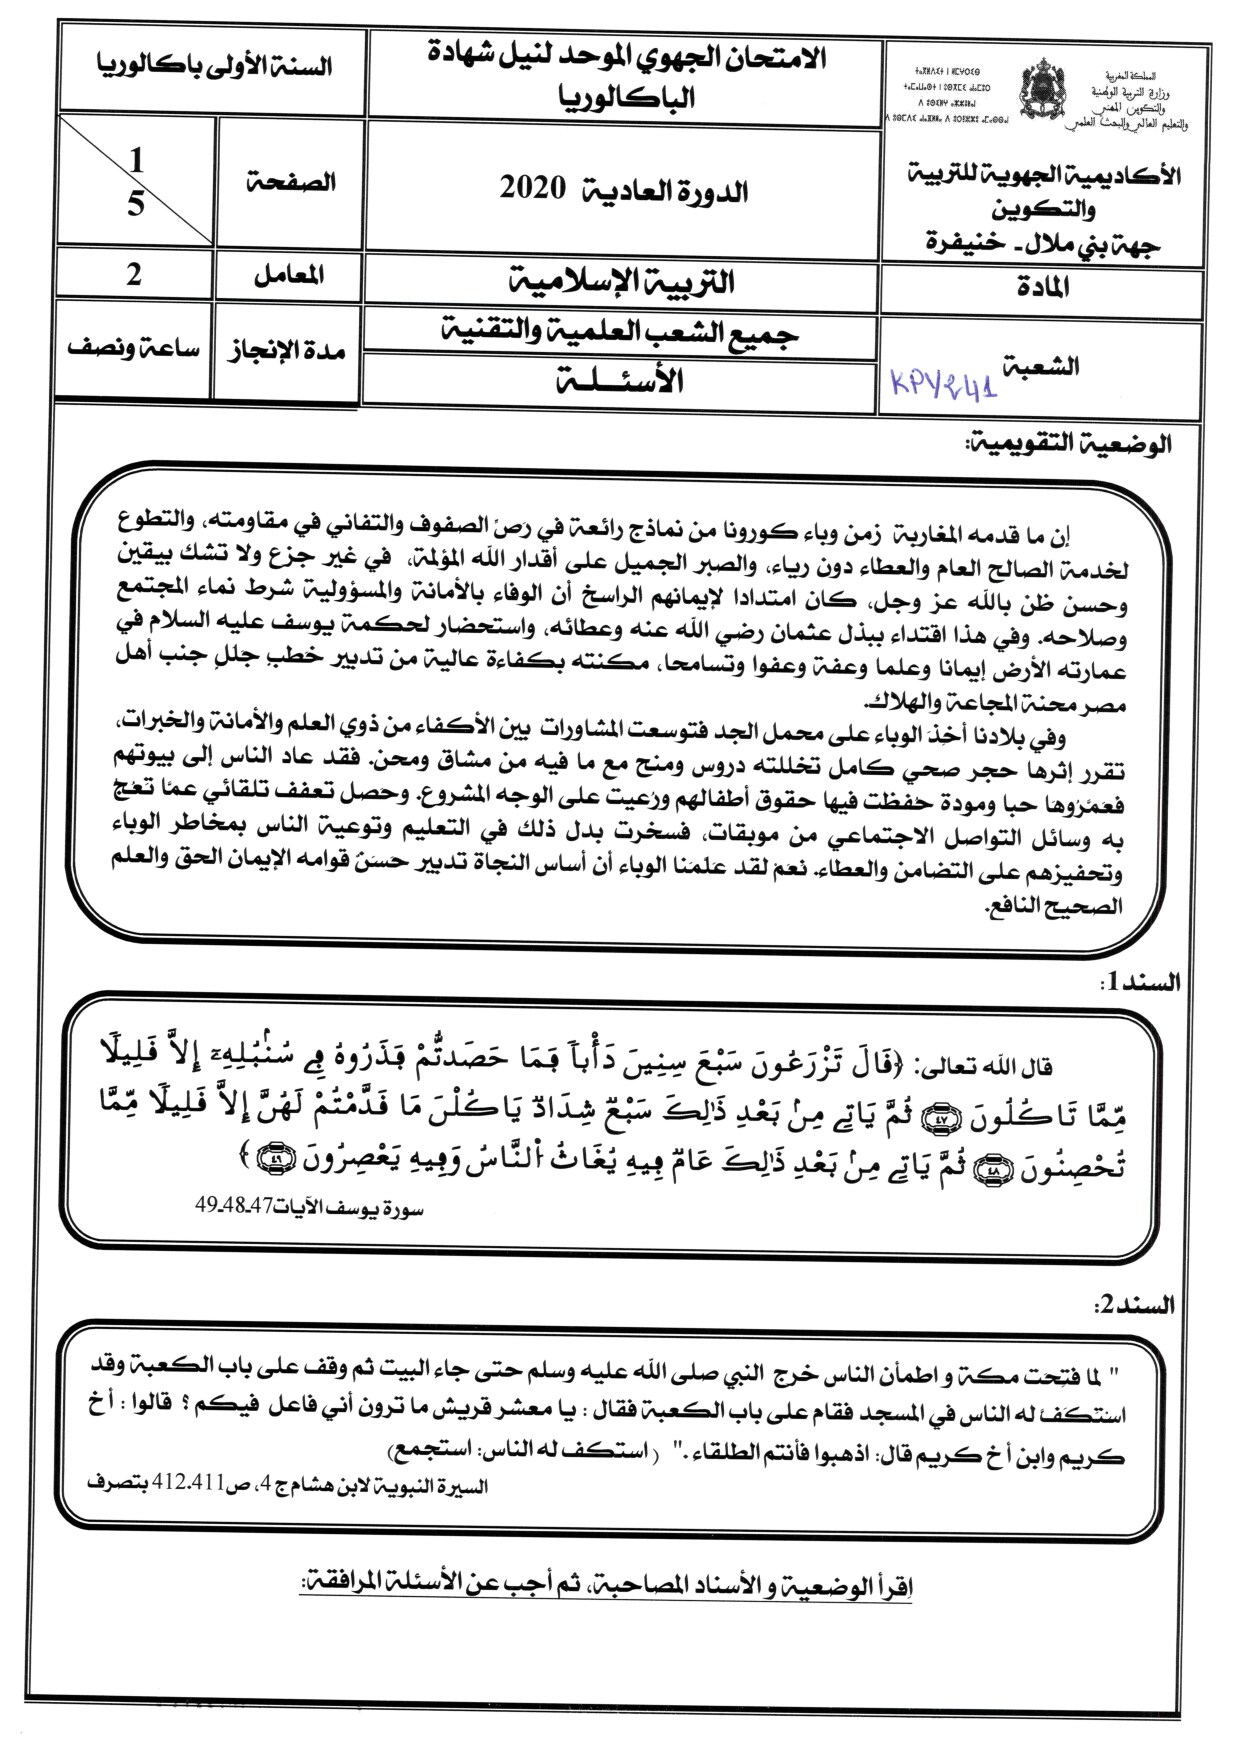 المملكة المغربية
وزارة التربية الوطنية
والتكوين المهني
والتعليم العالي والبحث العلمي
الأكاديمية الجهوية للتربية
والتكوين
جهة بني ملال- خنيفرة
الامتحان الجهوي الموحد لنيل شهادة
الباكالوريا
السنة الأولى باكالوريا
الدورة العادية 2020
الصفحة
1
5
المادة
التربية الإسلامية
المعامل
2
الشعبة
KPY241
جميع الشعب العلمية والتقنية
الأسئـلـة
مدة الإنجاز
ساعة ونصف
الوضعية التقويمية:
إن ما قدمه المغاربة زمن وباء كورونا من نماذج رائعة في رَصّ الصفوف والتفاني في مقاومته، والتطوع
لخدمة الصالح العام والعطاء دون رياء، والصبر الجميل على أقدار الله المؤلمة، في غير جزع ولا تشك بيقين
وحسن ظن بالله عز وجل، كان امتدادا لإيمانهم الراسخ أن الوفاء بالأمانة والمسؤولية شرط نماء المجتمع
وصلاحه. وفي هذا اقتداء ببذل عثمان رضي الله عنه وعطائه، واستحضار لحكمة يوسف عليه السلام في
عمارته الأرض إيمانا وعلما وعفة وعفوا وتسامحا، مكنته بكفاءة عالية من تدبير خطبٍ جللٍ جنب أهل
مصر محنة المجاعة والهلاك.
وفي بلادنا أخِذ الوباء على محمل الجد فتوسعت المشاورات بين الأكفاء من ذوي العلم والأمانة والخبرات،
تقرر إثرها حجر صحي كامل تخللته دروس ومنح مع ما فيه من مشاق ومحن. فقد عاد الناس إلى بيوتهم
فعمّروها حبا ومودة حفظت فيها حقوق أطفالهم ورُعيت على الوجه المشروع. وحصل تعفف تلقائي عمّا تعج
به وسائل التواصل الاجتماعي من موبقات، فسخرت بدل ذلك في التعليم وتوعية الناس بمخاطر الوباء
وتحفيزهم على التضامن والعطاء. نعم لقد علمنا الوباء أن أساس النجاة تدبير حسن قوامه الإيمان الحق والعلم
الصحيح النافع.
السند1:
قال الله تعالى: ﴿قَالَ تَزْرَعُونَ سَبْعَ سِنِينَ دَأْباً فَمَا حَصَدتُّمْ فَذَرُوهُ فِي سُنۢبُلِهِۦٓ إِلاَّ قَلِيلًا
مِّمَّا تَاكُلُونَ ٤٧ ثُمَّ يَاتِي مِنۢ بَعْدِ ذَٰلِكَ سَبْعٌ شِدَادٌ يَاكُلْنَ مَا قَدَّمْتُمْ لَهُنَّ إِلاَّ قَلِيلًا مِّمَّا
تُحْصِنُونَ ٤٨ ثُمَّ يَاتِي مِنۢ بَعْدِ ذَٰلِكَ عَامٌ فِيهِ يُغَاثُ اُ۬لنَّاسُ وَفِيهِ يَعْصِرُونَ ٤٩ ﴾
سورة يوسف الآيات47ـ48ـ49
السند2:
" لما فتحت مكة و اطمأن الناس خرج النبي صلى الله عليه وسلم حتى جاء البيت ثم وقف على باب الكعبة وقد
استكف له الناس في المسجد فقام على باب الكعبة فقال : يا معشر قريش ما ترون أني فاعل فيكم ؟ قالوا : أخ
كريم وابن أخ كريم قال: اذهبوا فأنتم الطلقاء ." ( استكف له الناس: استجمع)
السيرة النبوية لابن هشام ج 4، ص411ـ412 بتصرف
اِقرأ الوضعية و الأسناد المصاحبة، ثم أجب عن الأسئلة المرافقة: